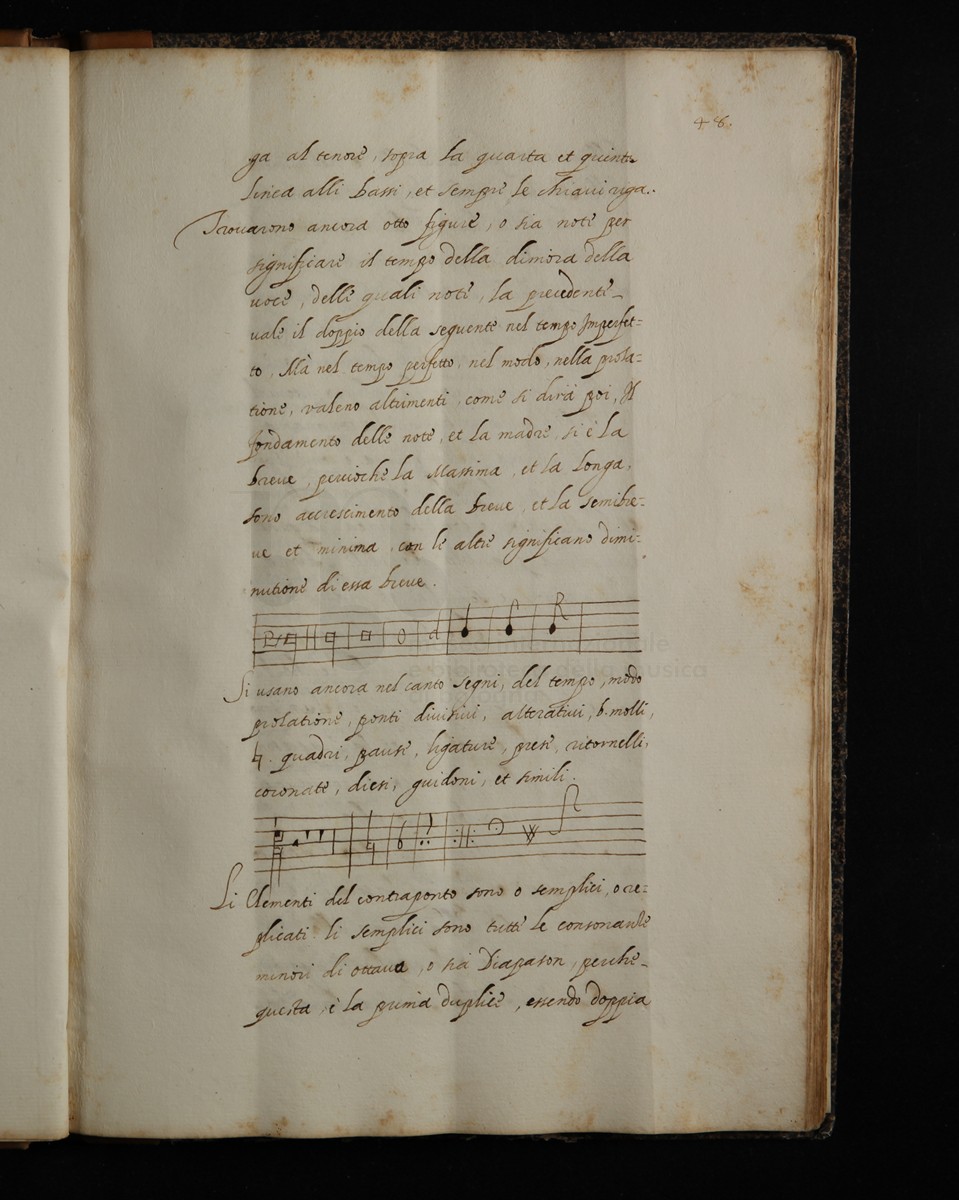 48.
ga al tenore, sopra la quarta et quinta
linea alli bassi, et sempre le chiavi riga.
Trouarono ancora otto figure, o sia note per
significare il tempo della dimora della
uoce, delle quali note, la precedente
uale il doppio della seguente nel tempo Imperfet=
to. Mà nel tempo perfetto, nel modo, nella prola=
tione, valeno altrimenti, come si dirà poi, Il
fondamento delle note, et la madre, si è la
breue, percioche la Massima, et la Longa,
sono accrescimento della breue, et la semibre=
ue et minima, con le altre significano dimi=
nutione di essa breue.
Si usano ancora nel canto segni, del tempo, modo
prolatione, ponti diuisiui, alteratiui, b. molli,
♮. quadri, pause, ligature, prese, ritornelli,
coronate, diesi, guidoni, et simili.
Li Elementi del contraponto sono o semplici, o re=
plicati. li semplici sono tutte le consonanze
minori di ottaua, o sia Diapason, perche
questa, è la prima duplice, essendo doppia